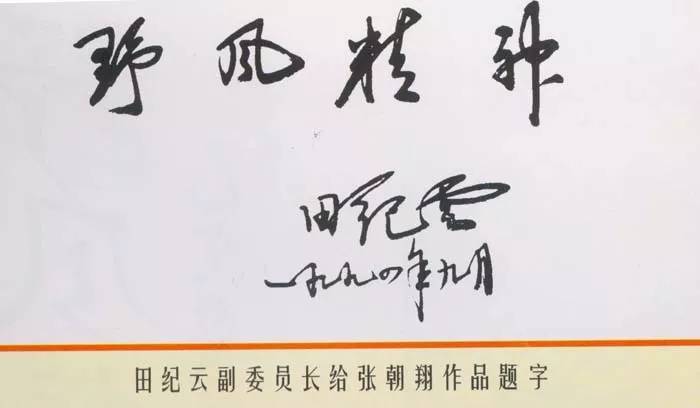 野风精神
田纪云
一九九四年九月
田纪云副委员长给张朝翔作品题字